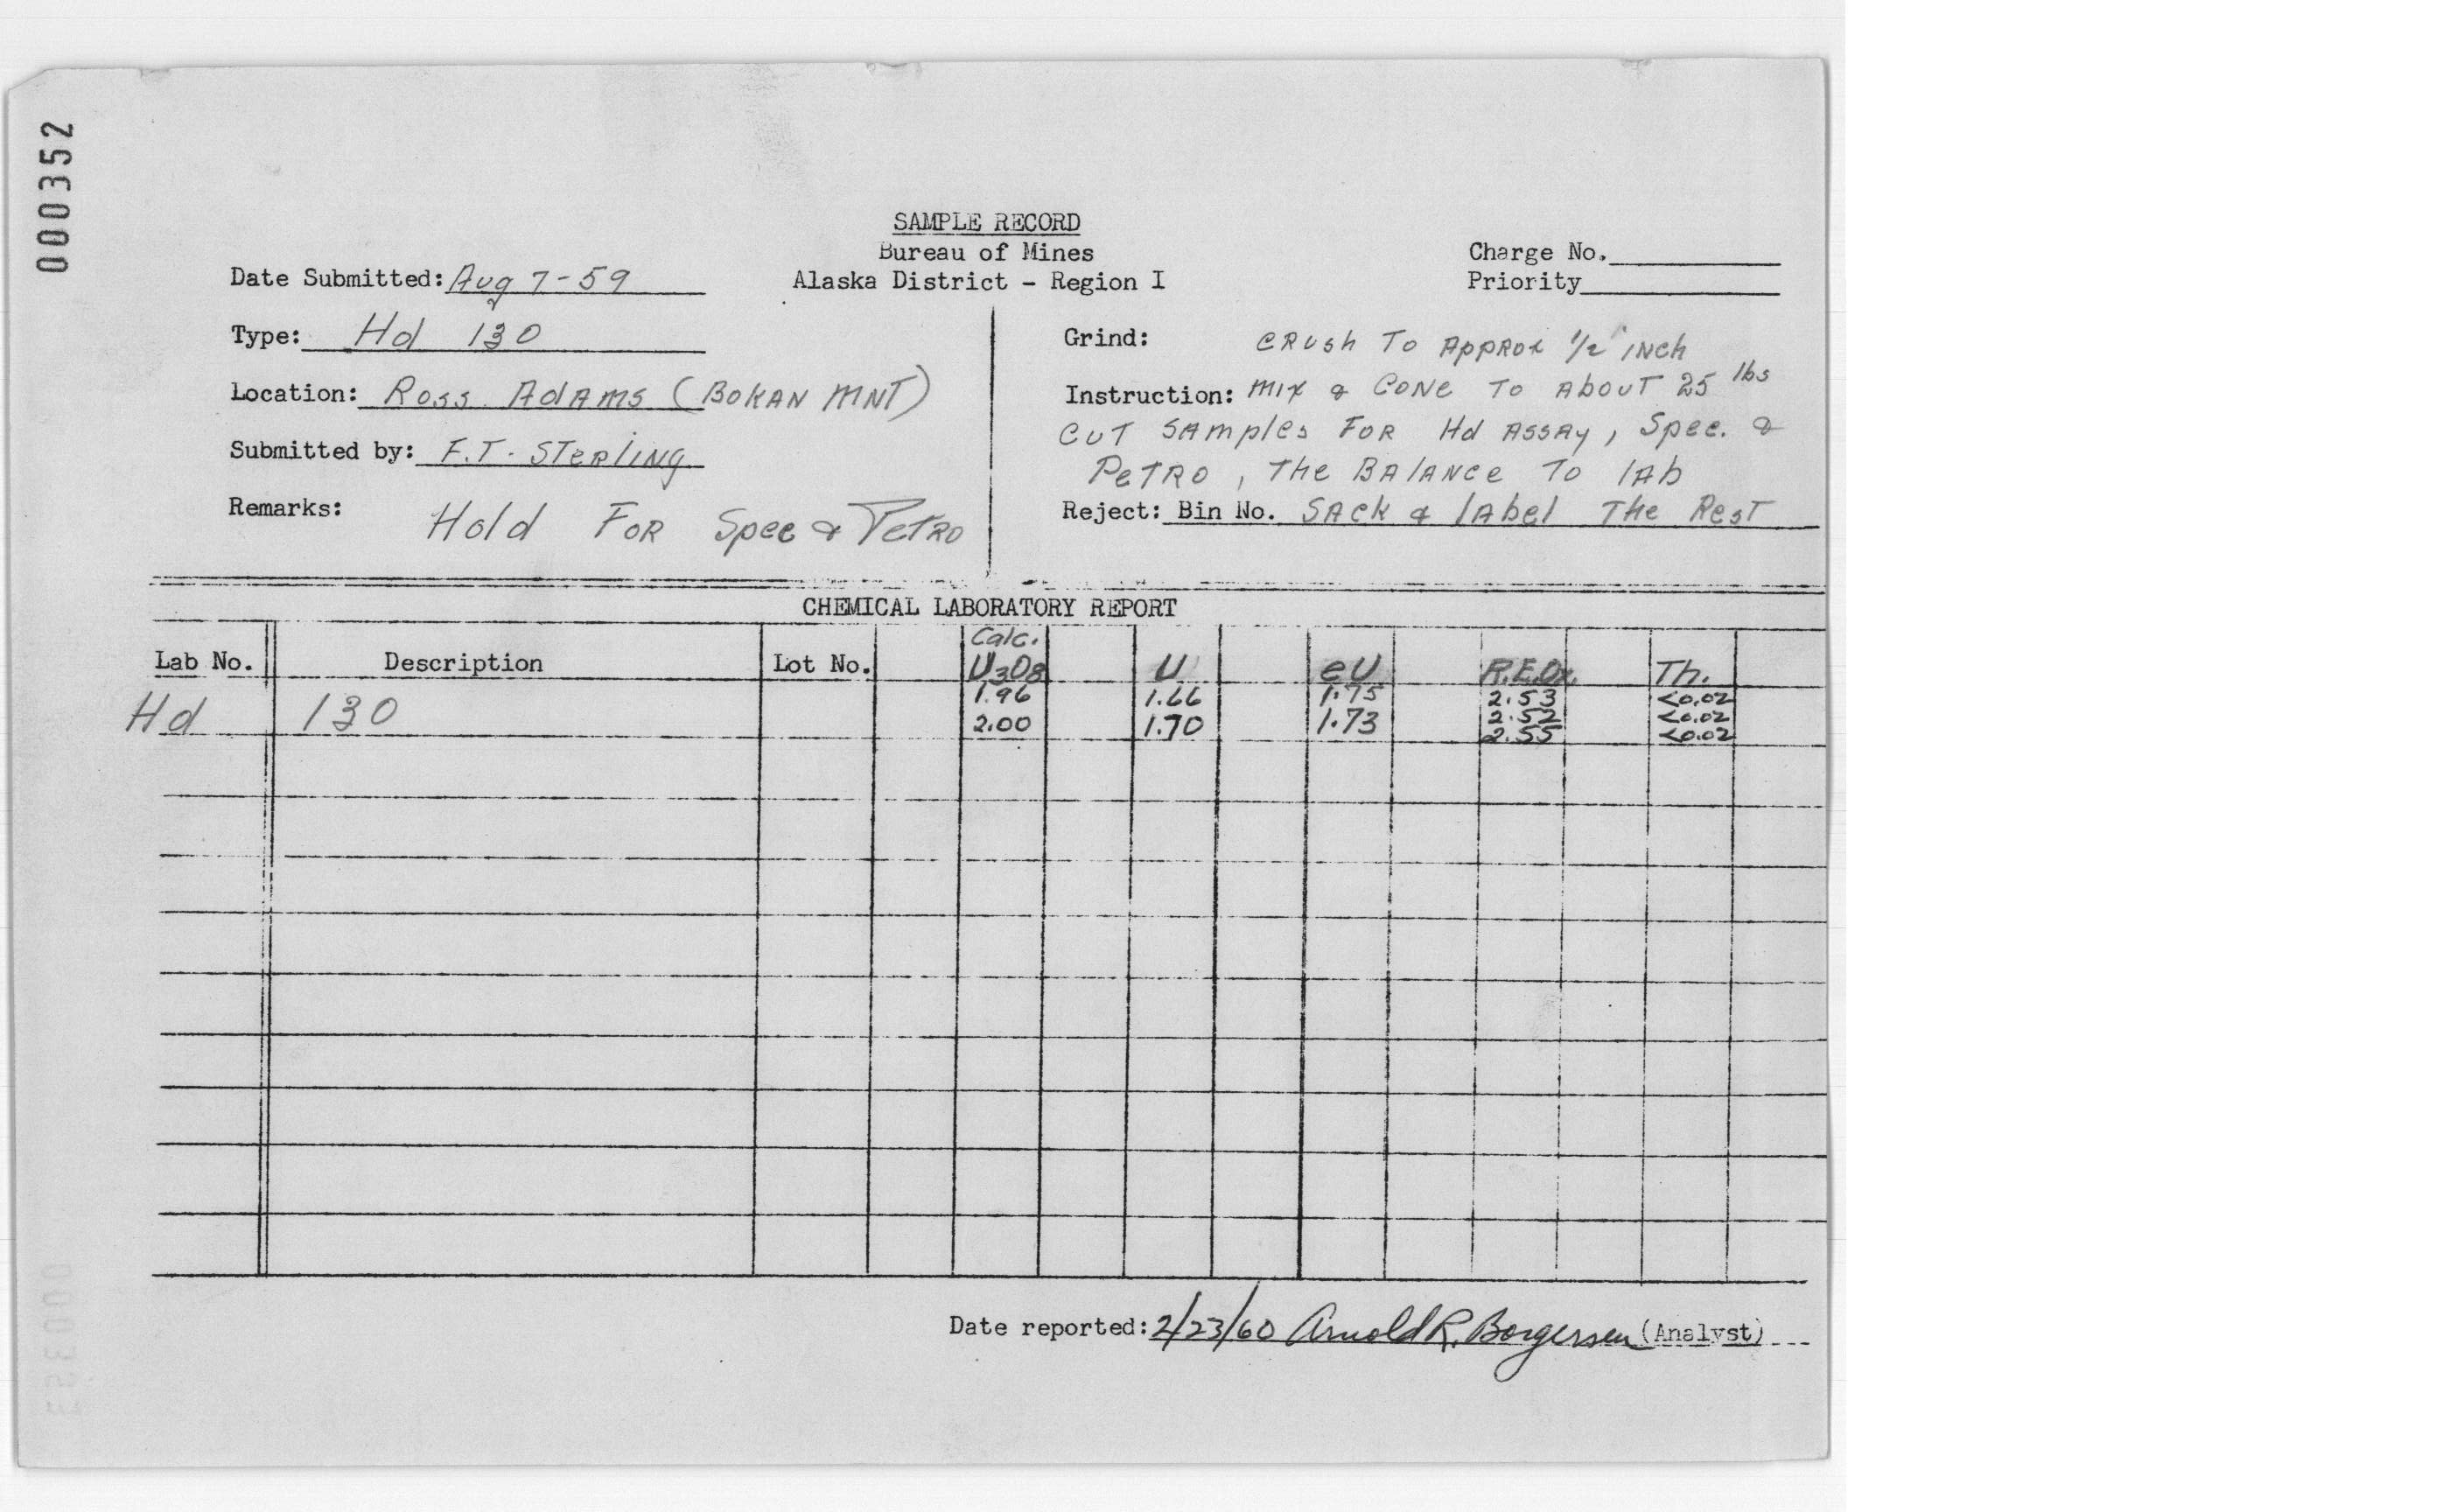 000352
SAMPLE RECORD
Bureau of Mines
Alaska District - Region I
Charge No.
Priority
Date Submitted: Aug 7-59
Type: Hd 130
Location: Ross Adams (Bokan Mnt)
Submitted by: F.T. Sterling
Remarks: Hold For Spec & Petro
Grind: Crush To Approx 1/2 inch
Instruction: Mix & Cone To About 25 lbs
Cut Samples For Hd Assay, Spec. &
Petro, The Balance To lab
Reject: Bin No. Sack & label The Rest
CHEMICAL LABORATORY REPORT
Lab No. Description Lot No. Calc. U3O8 U eU R.E.Ox. Th.
Hd 130
1.96 1.66 1.75 2.53 <0.02
2.00 1.70 1.73 2.52 <0.02
2.55 <0.02
Date reported: 2/23/60 Arnold R. Borgersen (Analyst)